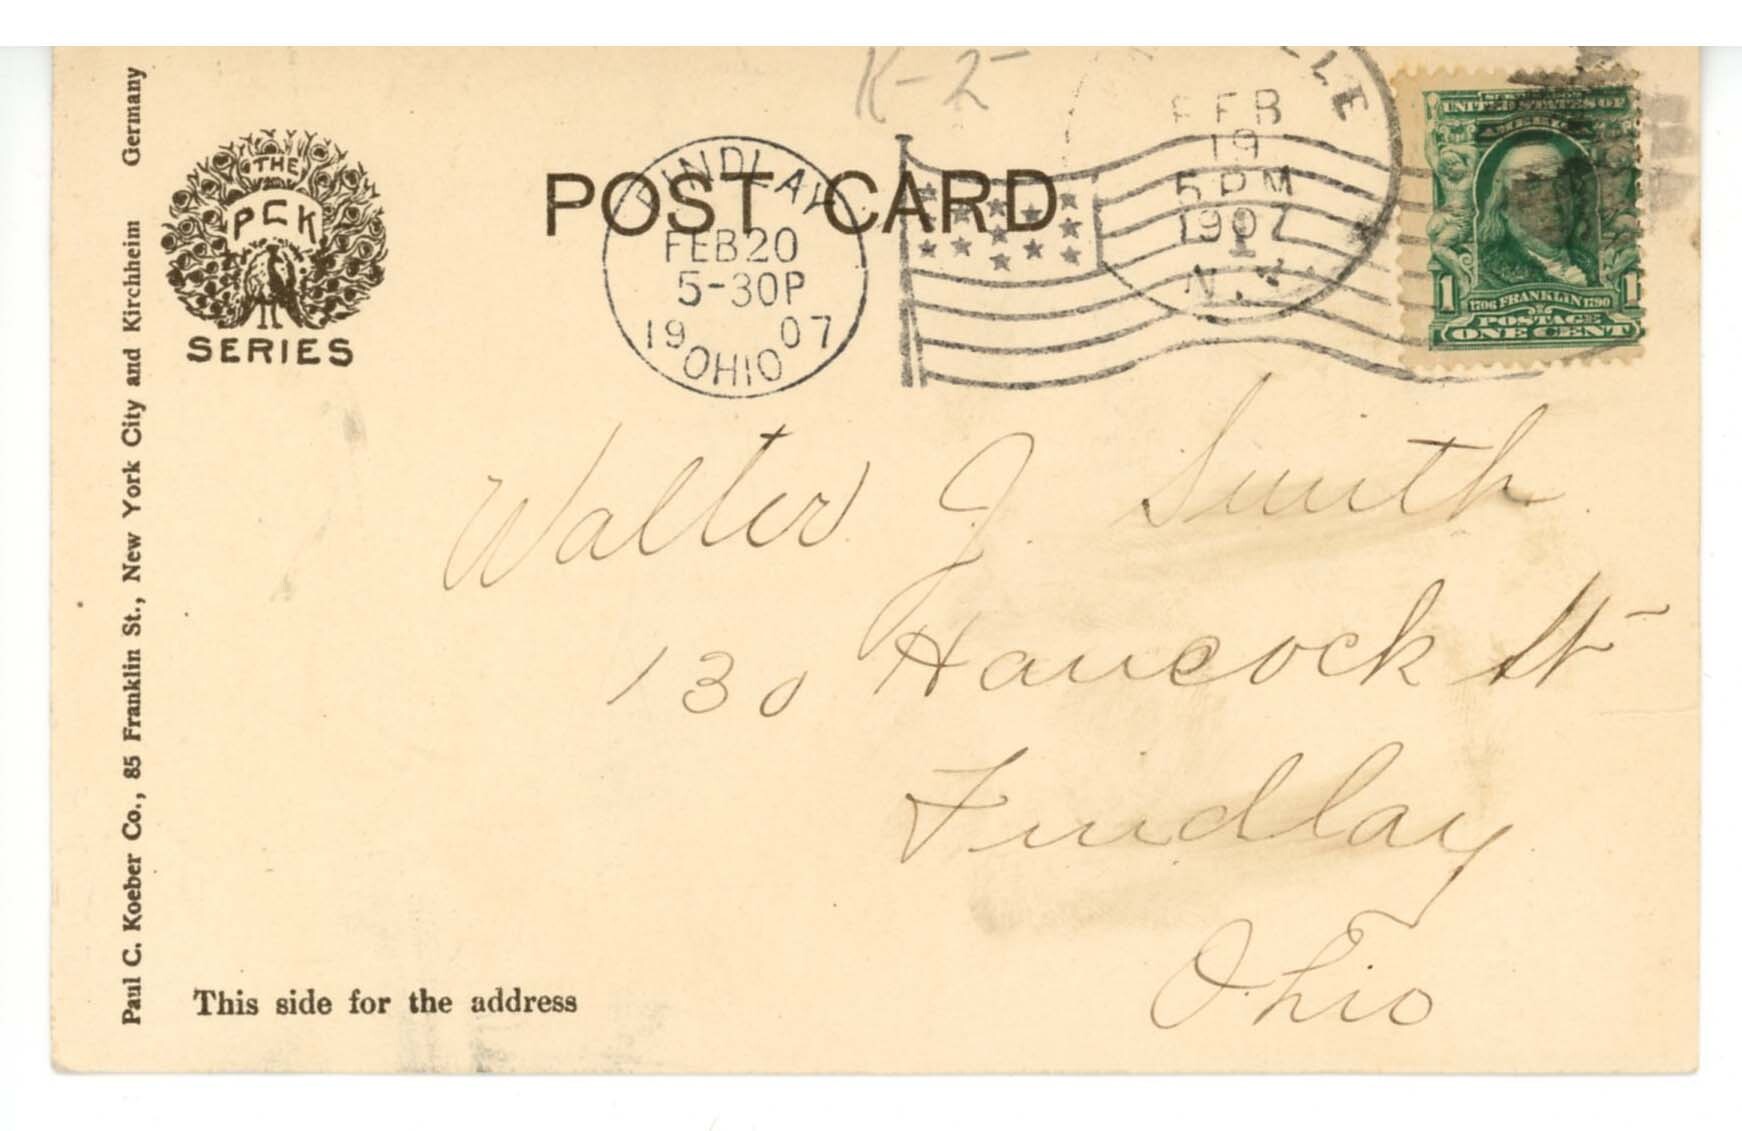 K-2
LLE
FEB
19
5 PM
1907
1
N.Y.
UNITED STATES OF
AMERICA
1 1706 FRANKLIN 1790 1
POSTAGE
ONE CENT
THE
PCK
SERIES
POST CARD
FINDLAY
FEB 20
5-30P
19 07
OHIO
Walter J. Smith
130 Hancock St
Findlay
Ohio
This side for the address
Paul C. Koeber Co., 85 Franklin St., New York City and Kirchheim Germany